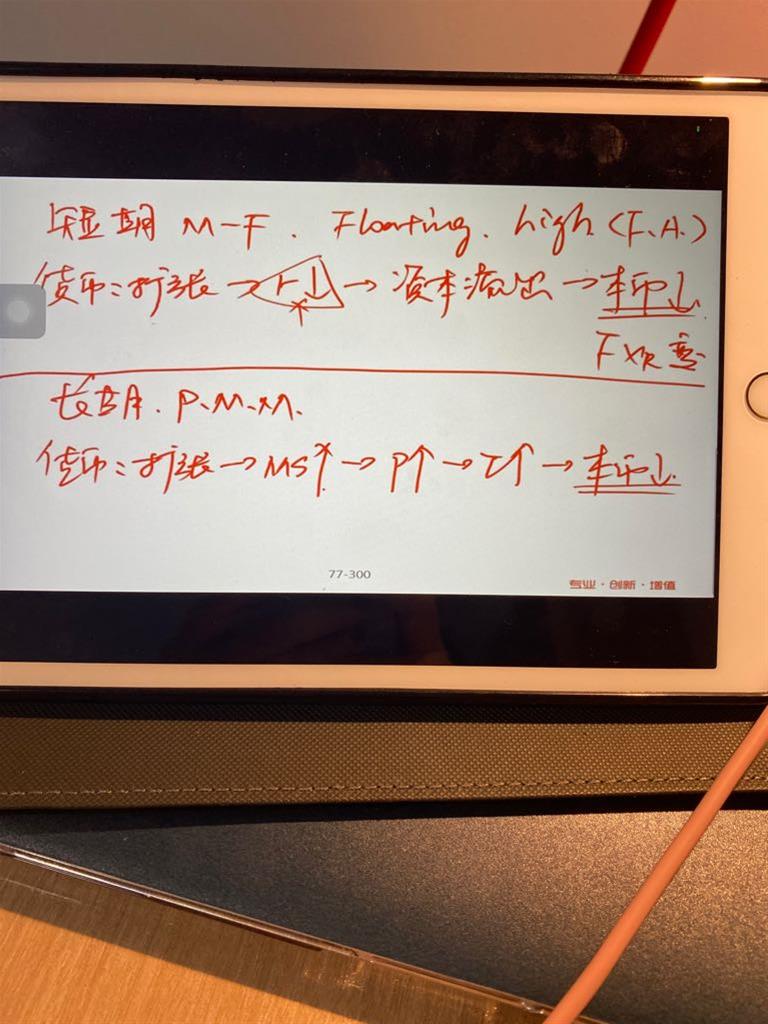 短期 M-F. Floating. high (F.A.)
货币:扩张→r↓→资本流出→本币↓
F X
长期. P.M.M.
货币:扩张→MS↑→P↑→π↑→本币↓
77-300
专业·创新·增值